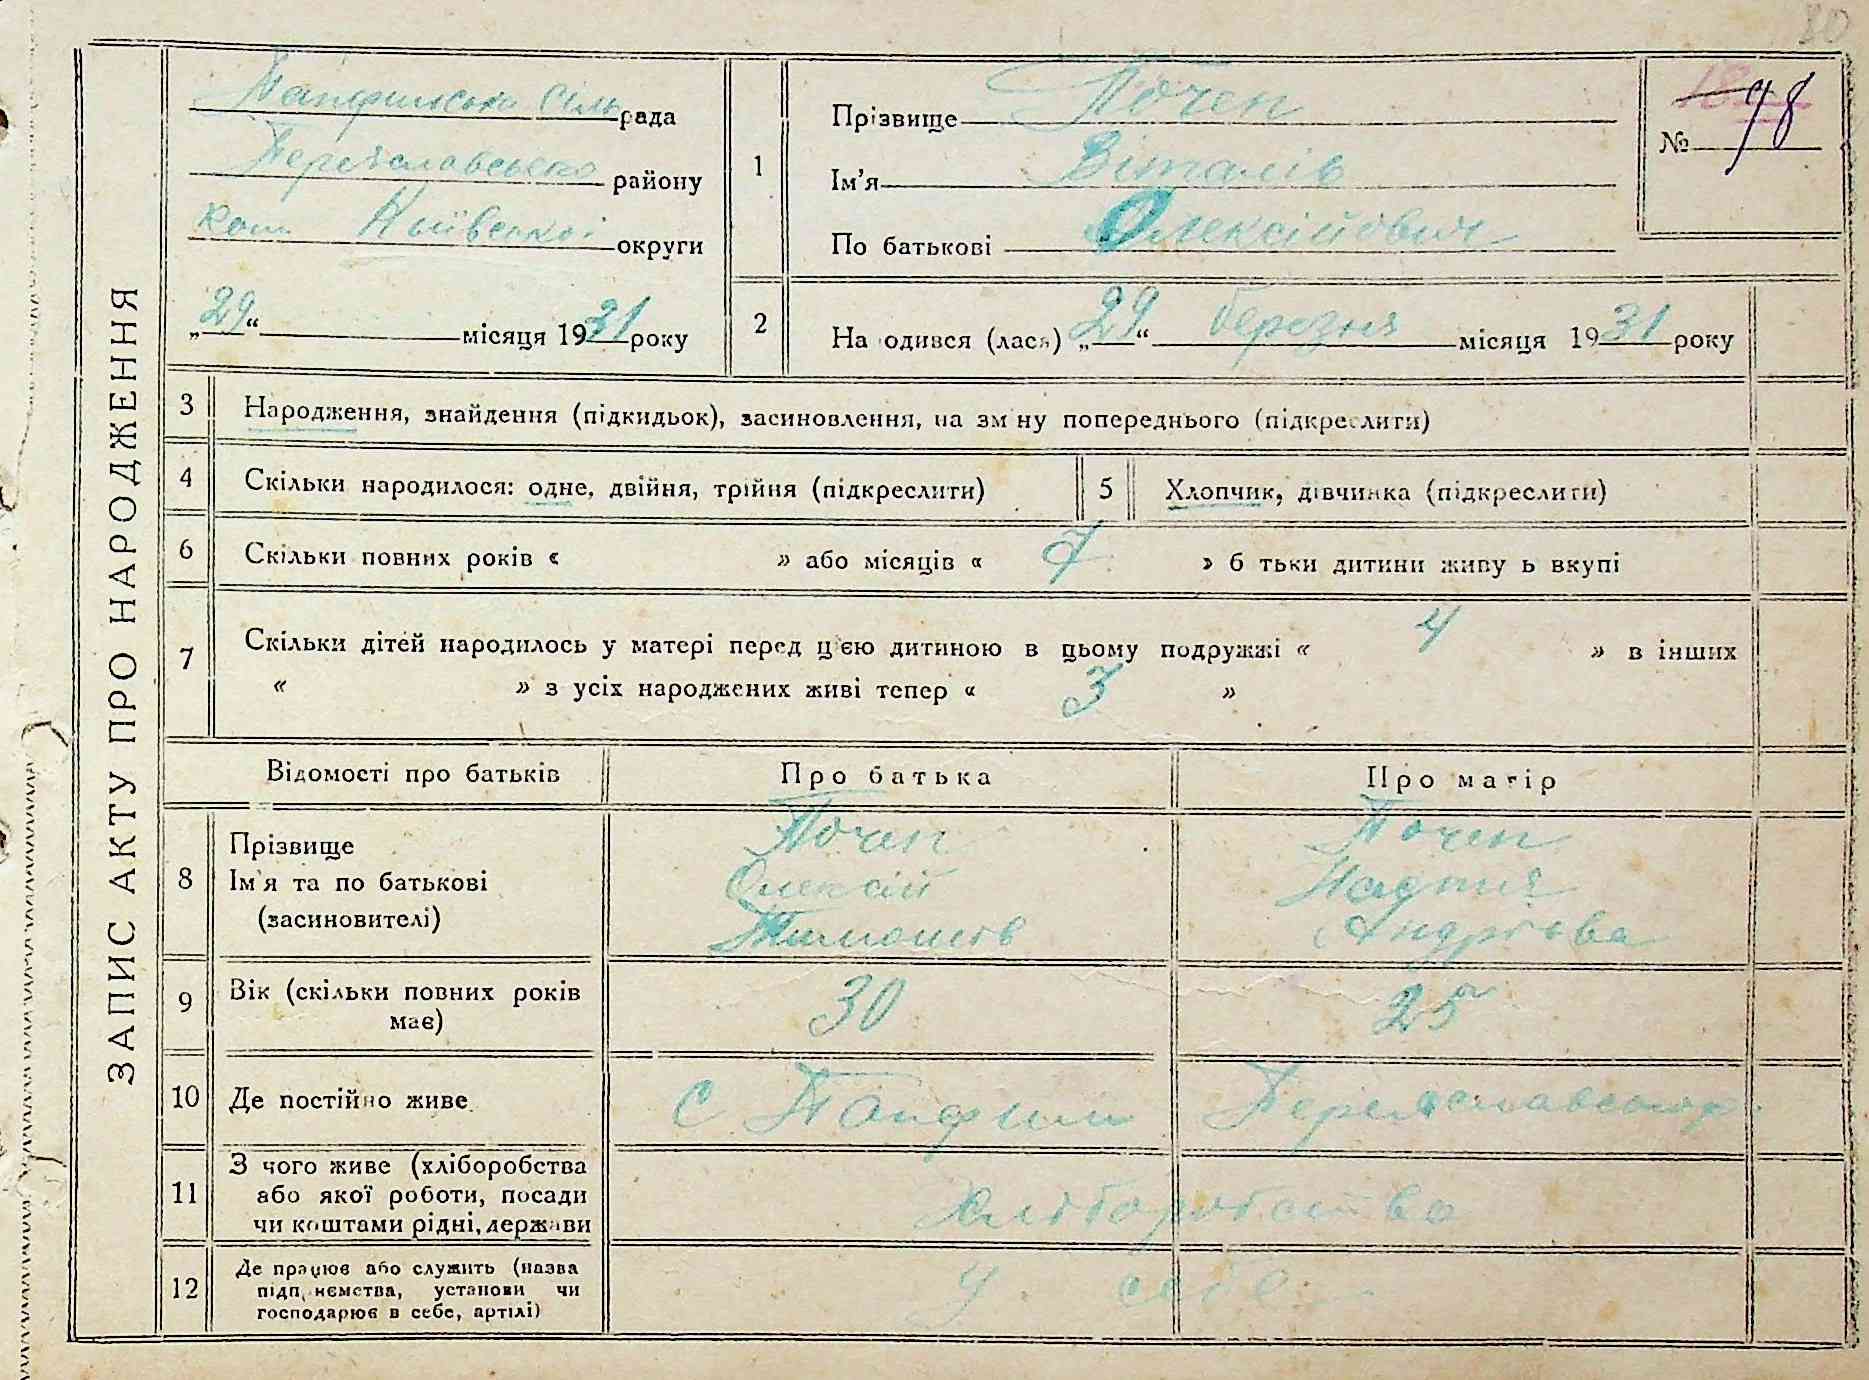 80
ЗАПИС АКТУ ПРО НАРОДЖЕННЯ
сіль рада
району
Київської округи
„29“ місяця 1931 року
1
Прізвище Почеп
Ім'я Віталів
По батькові Олексійович
№ 18 98
2
На одився (лася) „29“ березня місяця 1931 року
3
Народження, знайдення (підкидьок), засиновлення, на зм ну попереднього (підкреслити)
4
Скільки народилося: одне, двійня, трійня (підкреслити)
5
Хлопчик, дівчинка (підкреслити)
6
Скільки повних років « » або місяців « 7 » б тьки дитини живу ь вкупі
7
Скільки дітей народилось у матері перед цією дитиною в цьому подружжі « 4 » в інших
« » з усіх народжених живі тепер « 3 »
Відомості про батьків
Про батька
Про матір
8
Прізвище
Ім'я та по батькові
(засиновителі)
Почеп
Олексій
Тимошів
Почеп
Надтія
Андрієва
9
Вік (скільки повних років
має)
30
25
10
Де постійно живе
с.
11
З чого живе (хліборобства
або якої роботи, посади
чи коштами рідні, держави
Хліборобства
12
Де працює або служить (назва
підп, нємства, установи чи
господарює в себе, артілі)
у себе